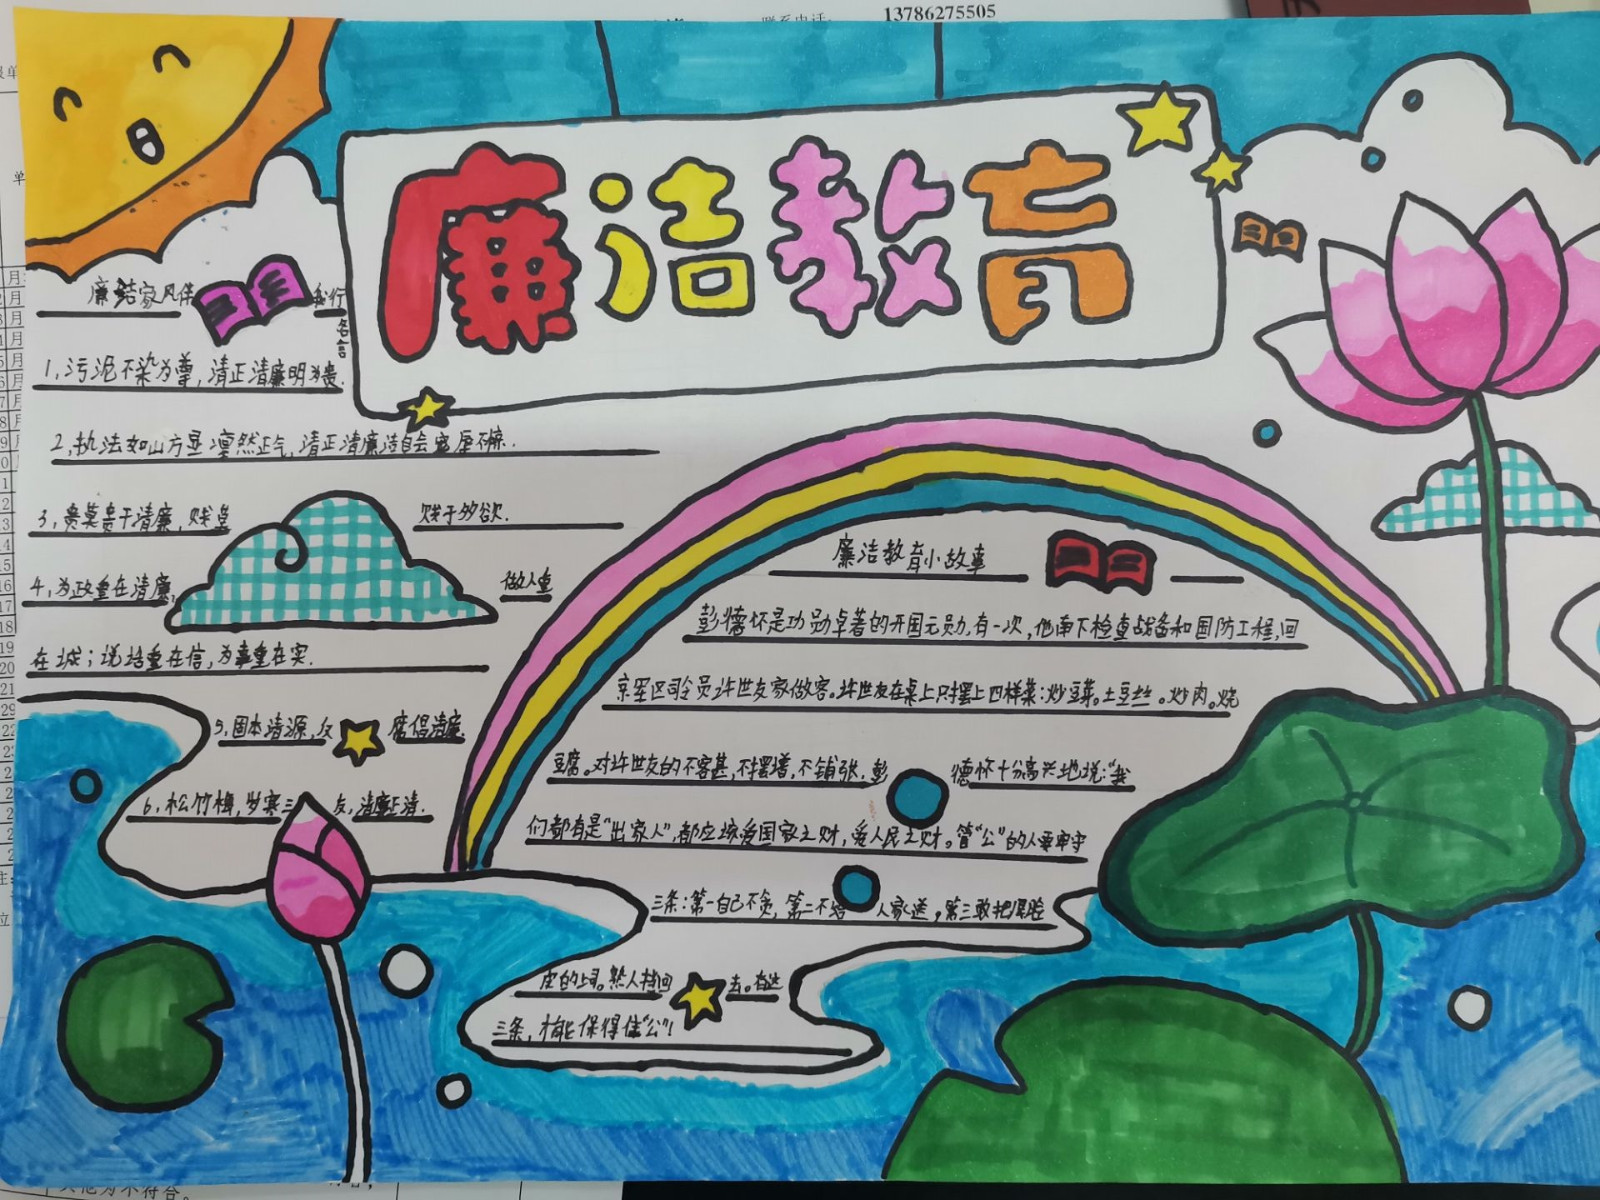 13786275505
联系电话:
廉洁教育
廉洁家风伴我行
名言
1,污泥不染为尊,清正清廉明为贵.
2,执法如山方显凛然正气,清正清廉洁自会
3,贵莫贵于清廉,贱莫贱于多欲.
4,为政重在清廉,做人重
在诚;说话重在信,为事重在实.
5,固本清源,反腐倡清廉.
6,松竹梅,岁寒三友,清廉正清.
廉洁教育小故事
彭德怀是功勋卓著的开国元勋.有一次,他南下检查战备和国防工程,回
京军区司令员许世友家做客。许世友在桌上只摆上四样菜:炒豆芽。土豆丝。炒肉。烧
豆腐。对许世友的不客甚,不摆谱,不铺张.彭德怀十分高兴地说:“我
们都有是“出家人”,都应该爱国家之财,爱人民之财。管“公”的人要牢守
三条:第一自己不贪,第二不给人家送,第三敢把厚脸
皮的上司。熟人挡回去。有这
三条,才能保得住“公”!
其他为不符合。